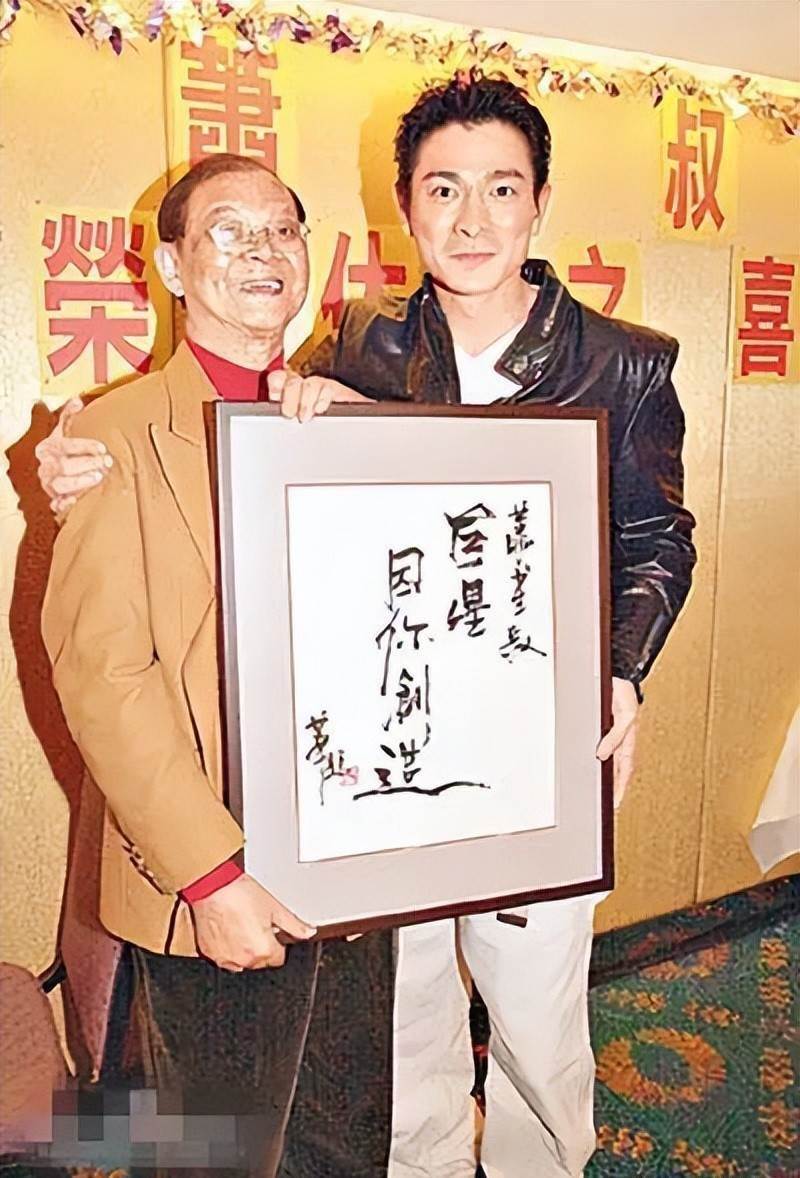 蕭 叔
榮休之喜
蕭笙叔
巨星
因你創造